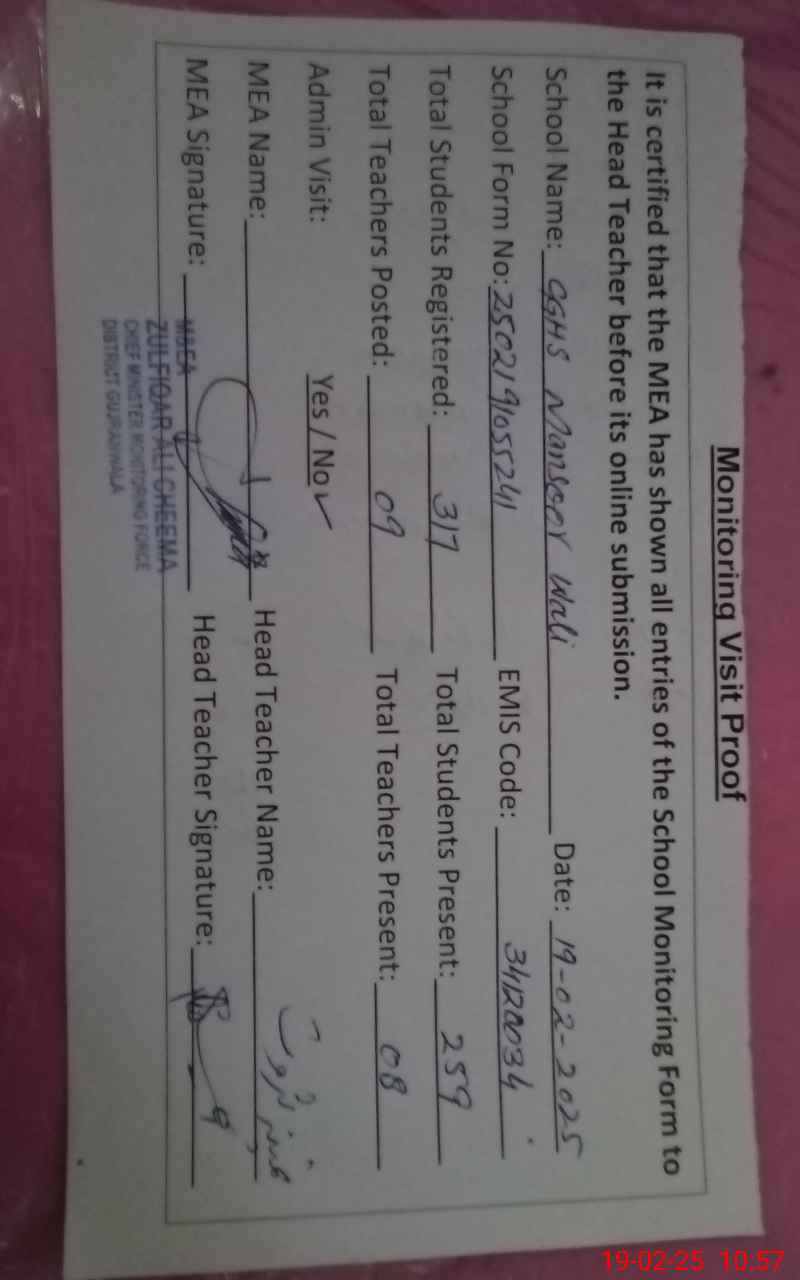 Monitoring Visit Proof
It is certified that the MEA has shown all entries of the School Monitoring Form to
the Head Teacher before its online submission.
School Name: GGHS Mansoor Wali Date: 19-02-2025
School Form No: 2502191055241 EMIS Code: 34120034
Total Students Registered: 317 Total Students Present: 259
Total Teachers Posted: 09 Total Teachers Present: 08
Admin Visit: Yes / No ✓
MEA Name: Head Teacher Name:
MEA Signature: Head Teacher Signature:
M&EA
ZULFIQAR ALI CHEEMA
CHIEF MINISTER MONITORING FORCE
DISTRICT GUJRANWALA
19-02-25 10:57